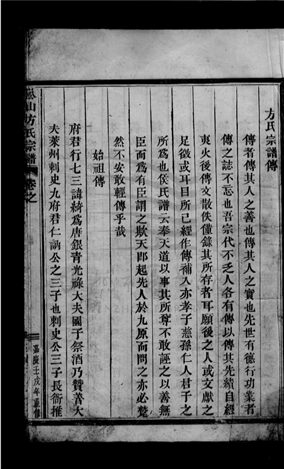 方氏宗譜傳
傳者傳其人之善也傳其人之實也先世有德行功業者
傳之誌不忘也吾宗代不乏人各有傳以傳其先績自經
夷火後傳文散佚僅錄其所存者耳願後之人或文獻之
足徵或耳目所已經作傳補入亦孝子慈孫仁人君子之
所爲也侯氏譜云奉天道以事其所尊不敢誣之以善無
臣而爲有臣謂之欺天卽起先人於九原而問之亦必蹙
然不安敢輕傳乎哉
始祖傳
府君行七三諱綺爲唐銀青光祿大夫國子祭酒乃贊善大
夫萊州刺史九府君仁訥公之三子也刺史公三子長衙推
山方氏宗譜
卷之
嘉慶壬戌年重修